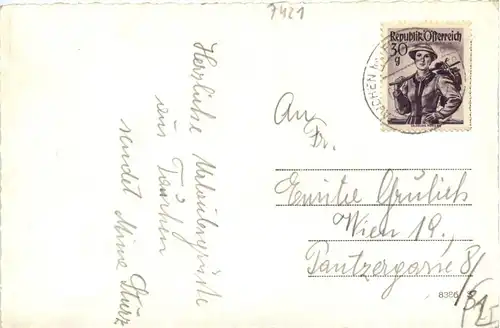 7421
Herzliche Urlaubsgrüße
aus
sendet Mina Sturz
Republik Österreich
30
g
An
Fr.
Emilie Grulich
Wien 19.,
Pantzergasse 8/
8386